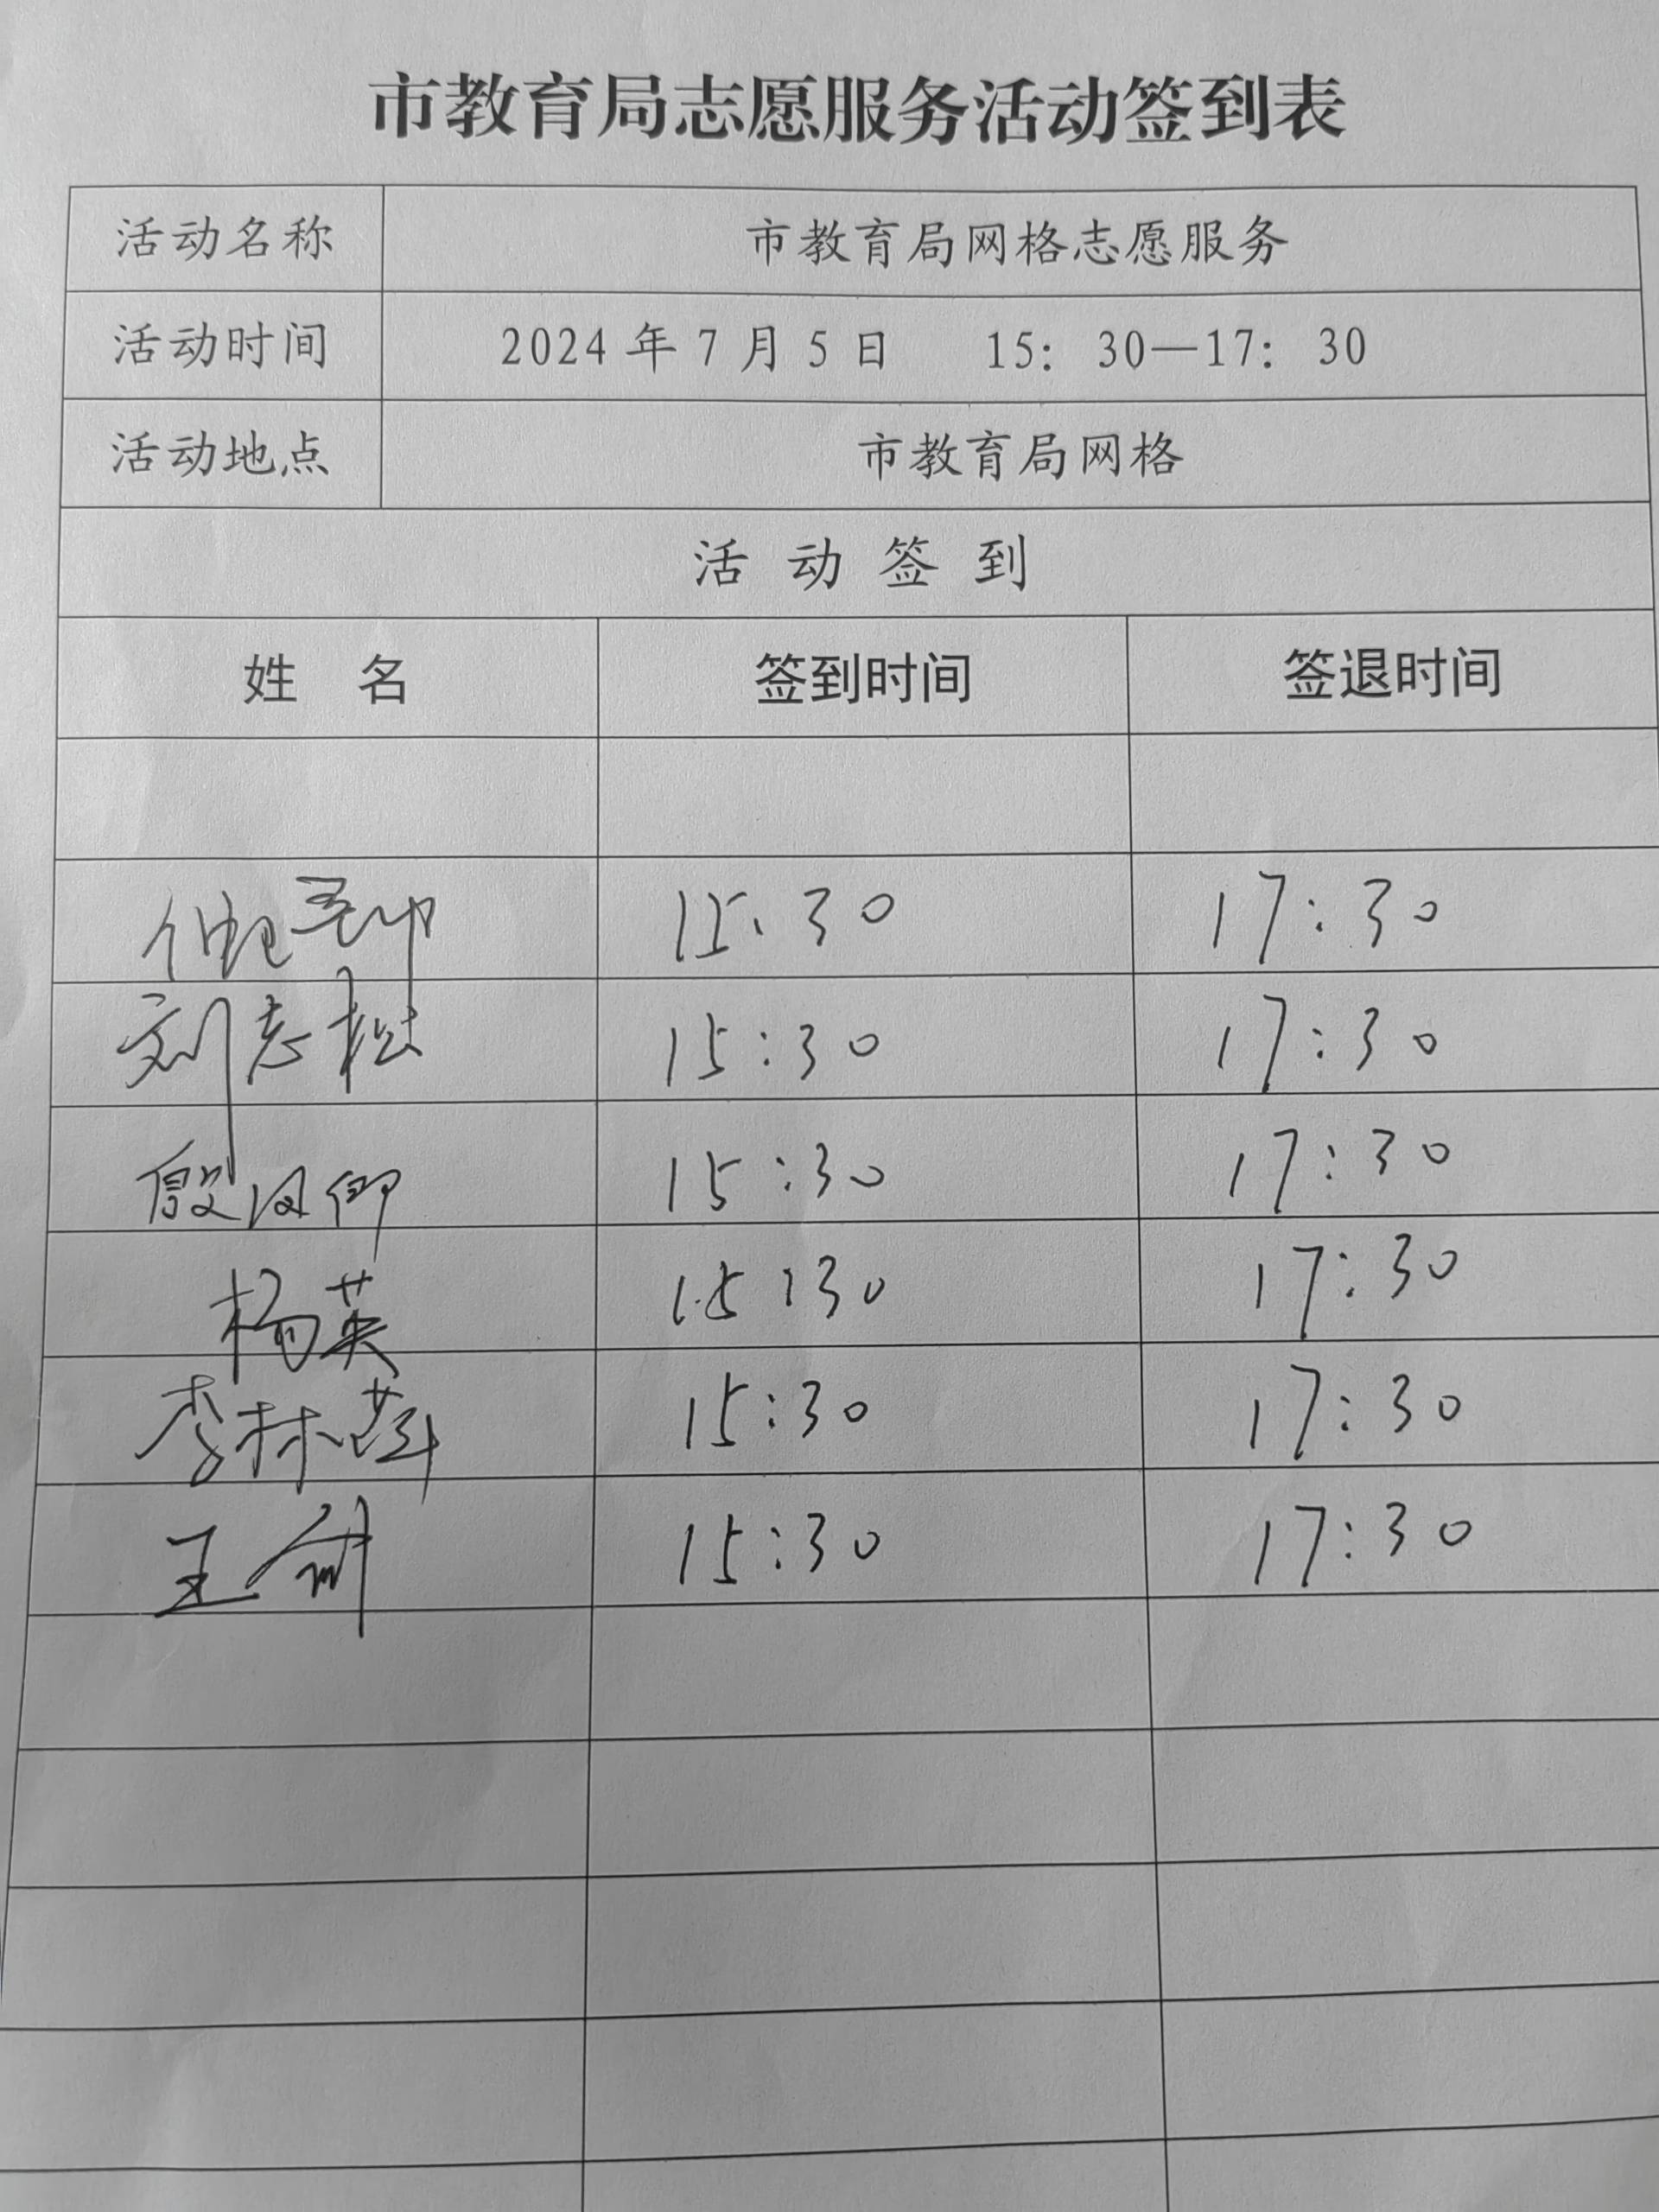 市教育局志愿服务活动签到表
活动名称 市教育局网格志愿服务
活动时间 2024年7月5日 15：30—17：30
活动地点 市教育局网格
活动签到
姓 名 签到时间 签退时间
15:30 17:30
刘志松 15:30 17:30
殷 15:30 17:30
杨英 15:30 17:30
李林蔚 15:30 17:30
王 15:30 17:30